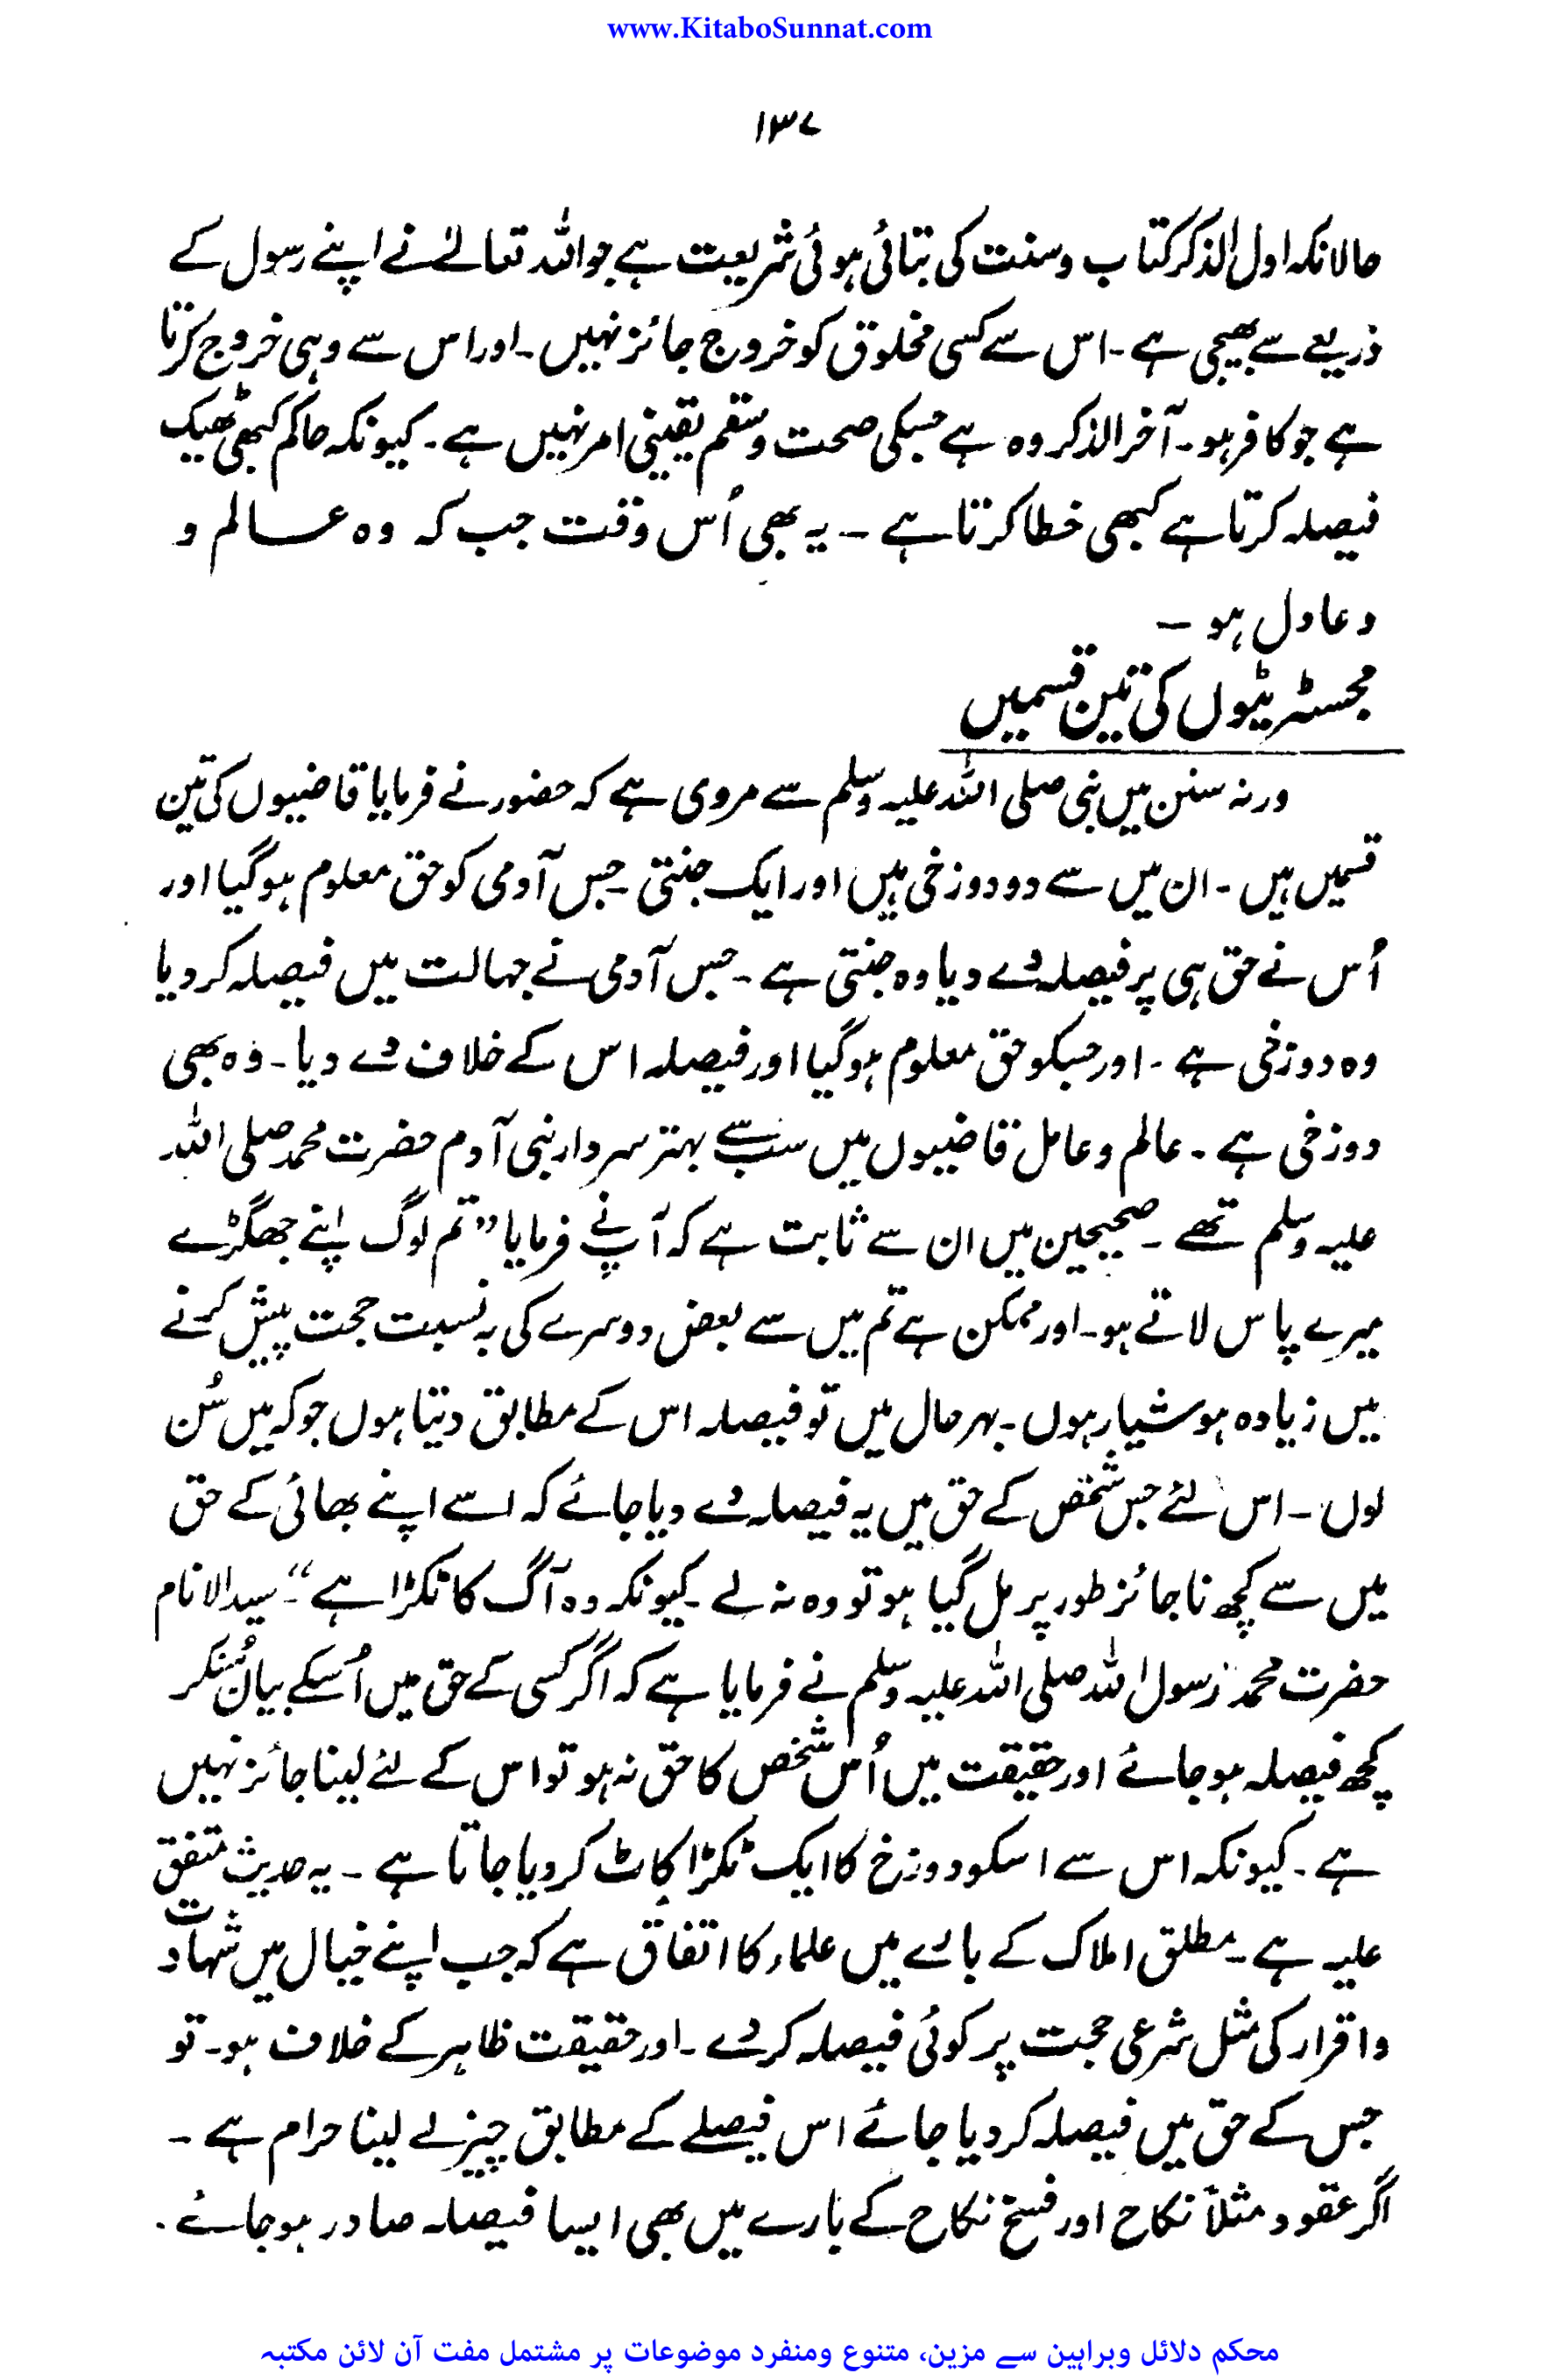 www.KitaboSunnat.com
۱۳۷
حالانکہ اول الذکر کتاب وسنت کی بتائی ہوئی شریعت ہے جو اللہ تعالےٰ نے اپنے رسول کے
ذریعے سے بھیجی ہے ۔ اس سے کسی مخلوق کو خروج جائز نہیں ۔ اور اس سے وہی خروج کرتا
ہے جو کافر ہو ۔ آخر الذکر وہ ہے جسکی صحت وسقم یقینی امر نہیں ہے ۔ کیونکہ حاکم کبھی ٹھیک
فیصلہ کرتا ہے کبھی خطا کرتا ہے ۔ یہ بھی اُس وقت جب کہ وہ عالم و
و عادل ہو ۔
مجسٹریٹوں کی تین قسمیں
ورنہ سنن میں نبی صلی اللہ علیہ وسلم سے مروی ہے کہ حضور نے فرمایا قاضیوں کی تین
قسمیں ہیں ۔ ان میں سے دو دوزخی ہیں اور ایک جنتی ۔ جس آدمی کو حق معلوم ہوگیا اور
اُس نے حق ہی پر فیصلہ دے دیا وہ جنتی ہے ۔ جس آدمی نے جہالت میں فیصلہ کر دیا
وہ دوزخی ہے ۔ اور جسکو حق معلوم ہوگیا اور فیصلہ اس کے خلاف دے دیا ۔ وہ بھی
دوزخی ہے ۔ عالم وعامل قاضیوں میں سب سے بہتر سردار بنی آدم حضرت محمد صلی اللہ
علیہ وسلم تھے ۔ صحیحین میں ان سے ثابت ہے کہ آپ نے فرمایا ”تم لوگ اپنے جھگڑے
میرے پاس لاتے ہو ۔ اور ممکن ہے تم میں سے بعض دوسرے کی بہ نسبت حجت پیش کرنے
میں زیادہ ہوشیار ہوں ۔ بہر حال میں تو فیصلہ اس کے مطابق دیتا ہوں جو کہ میں سُن
لوں ۔ اس لئے جس شخص کے حق میں یہ فیصلہ دے دیا جائے کہ اسے اپنے بھائی کے حق
میں سے کچھ ناجائز طور پر مل گیا ہو تو وہ نہ لے ۔ کیونکہ وہ آگ کا ٹکڑا ہے“ ۔ سید الانام
حضرت محمد رسول اللہ صلی اللہ علیہ وسلم نے فرمایا ہے کہ اگر کسی کے حق میں اُسکے بیان سُنکر
کچھ فیصلہ ہو جائے اور حقیقت میں اُس شخص کا حق نہ ہو تو اس کے لئے لینا جائز نہیں
ہے ۔ کیونکہ اس سے اسکو دوزخ کا ایک ٹکڑا کاٹ کر دیا جاتا ہے ۔ یہ حدیث متفق
علیہ ہے ۔ مطلق املاک کے بارے میں علماء کا اتفاق ہے کہ جب اپنے خیال میں شہادت
واقرار کی مثل شرعی حجت پر کوئی فیصلہ کر دے ۔ اور حقیقت ظاہر کے خلاف ہو ۔ تو
جس کے حق میں فیصلہ کر دیا جائے اس فیصلے کے مطابق چیز لے لینا حرام ہے ۔
اگر عقود مثلاً نکاح اور فسخ نکاح کے بارے میں بھی ایسا فیصلہ صادر ہو جائے ۔
محکم دلائل وبراہین سے مزین، متنوع ومنفرد موضوعات پر مشتمل مفت آن لائن مکتبہ